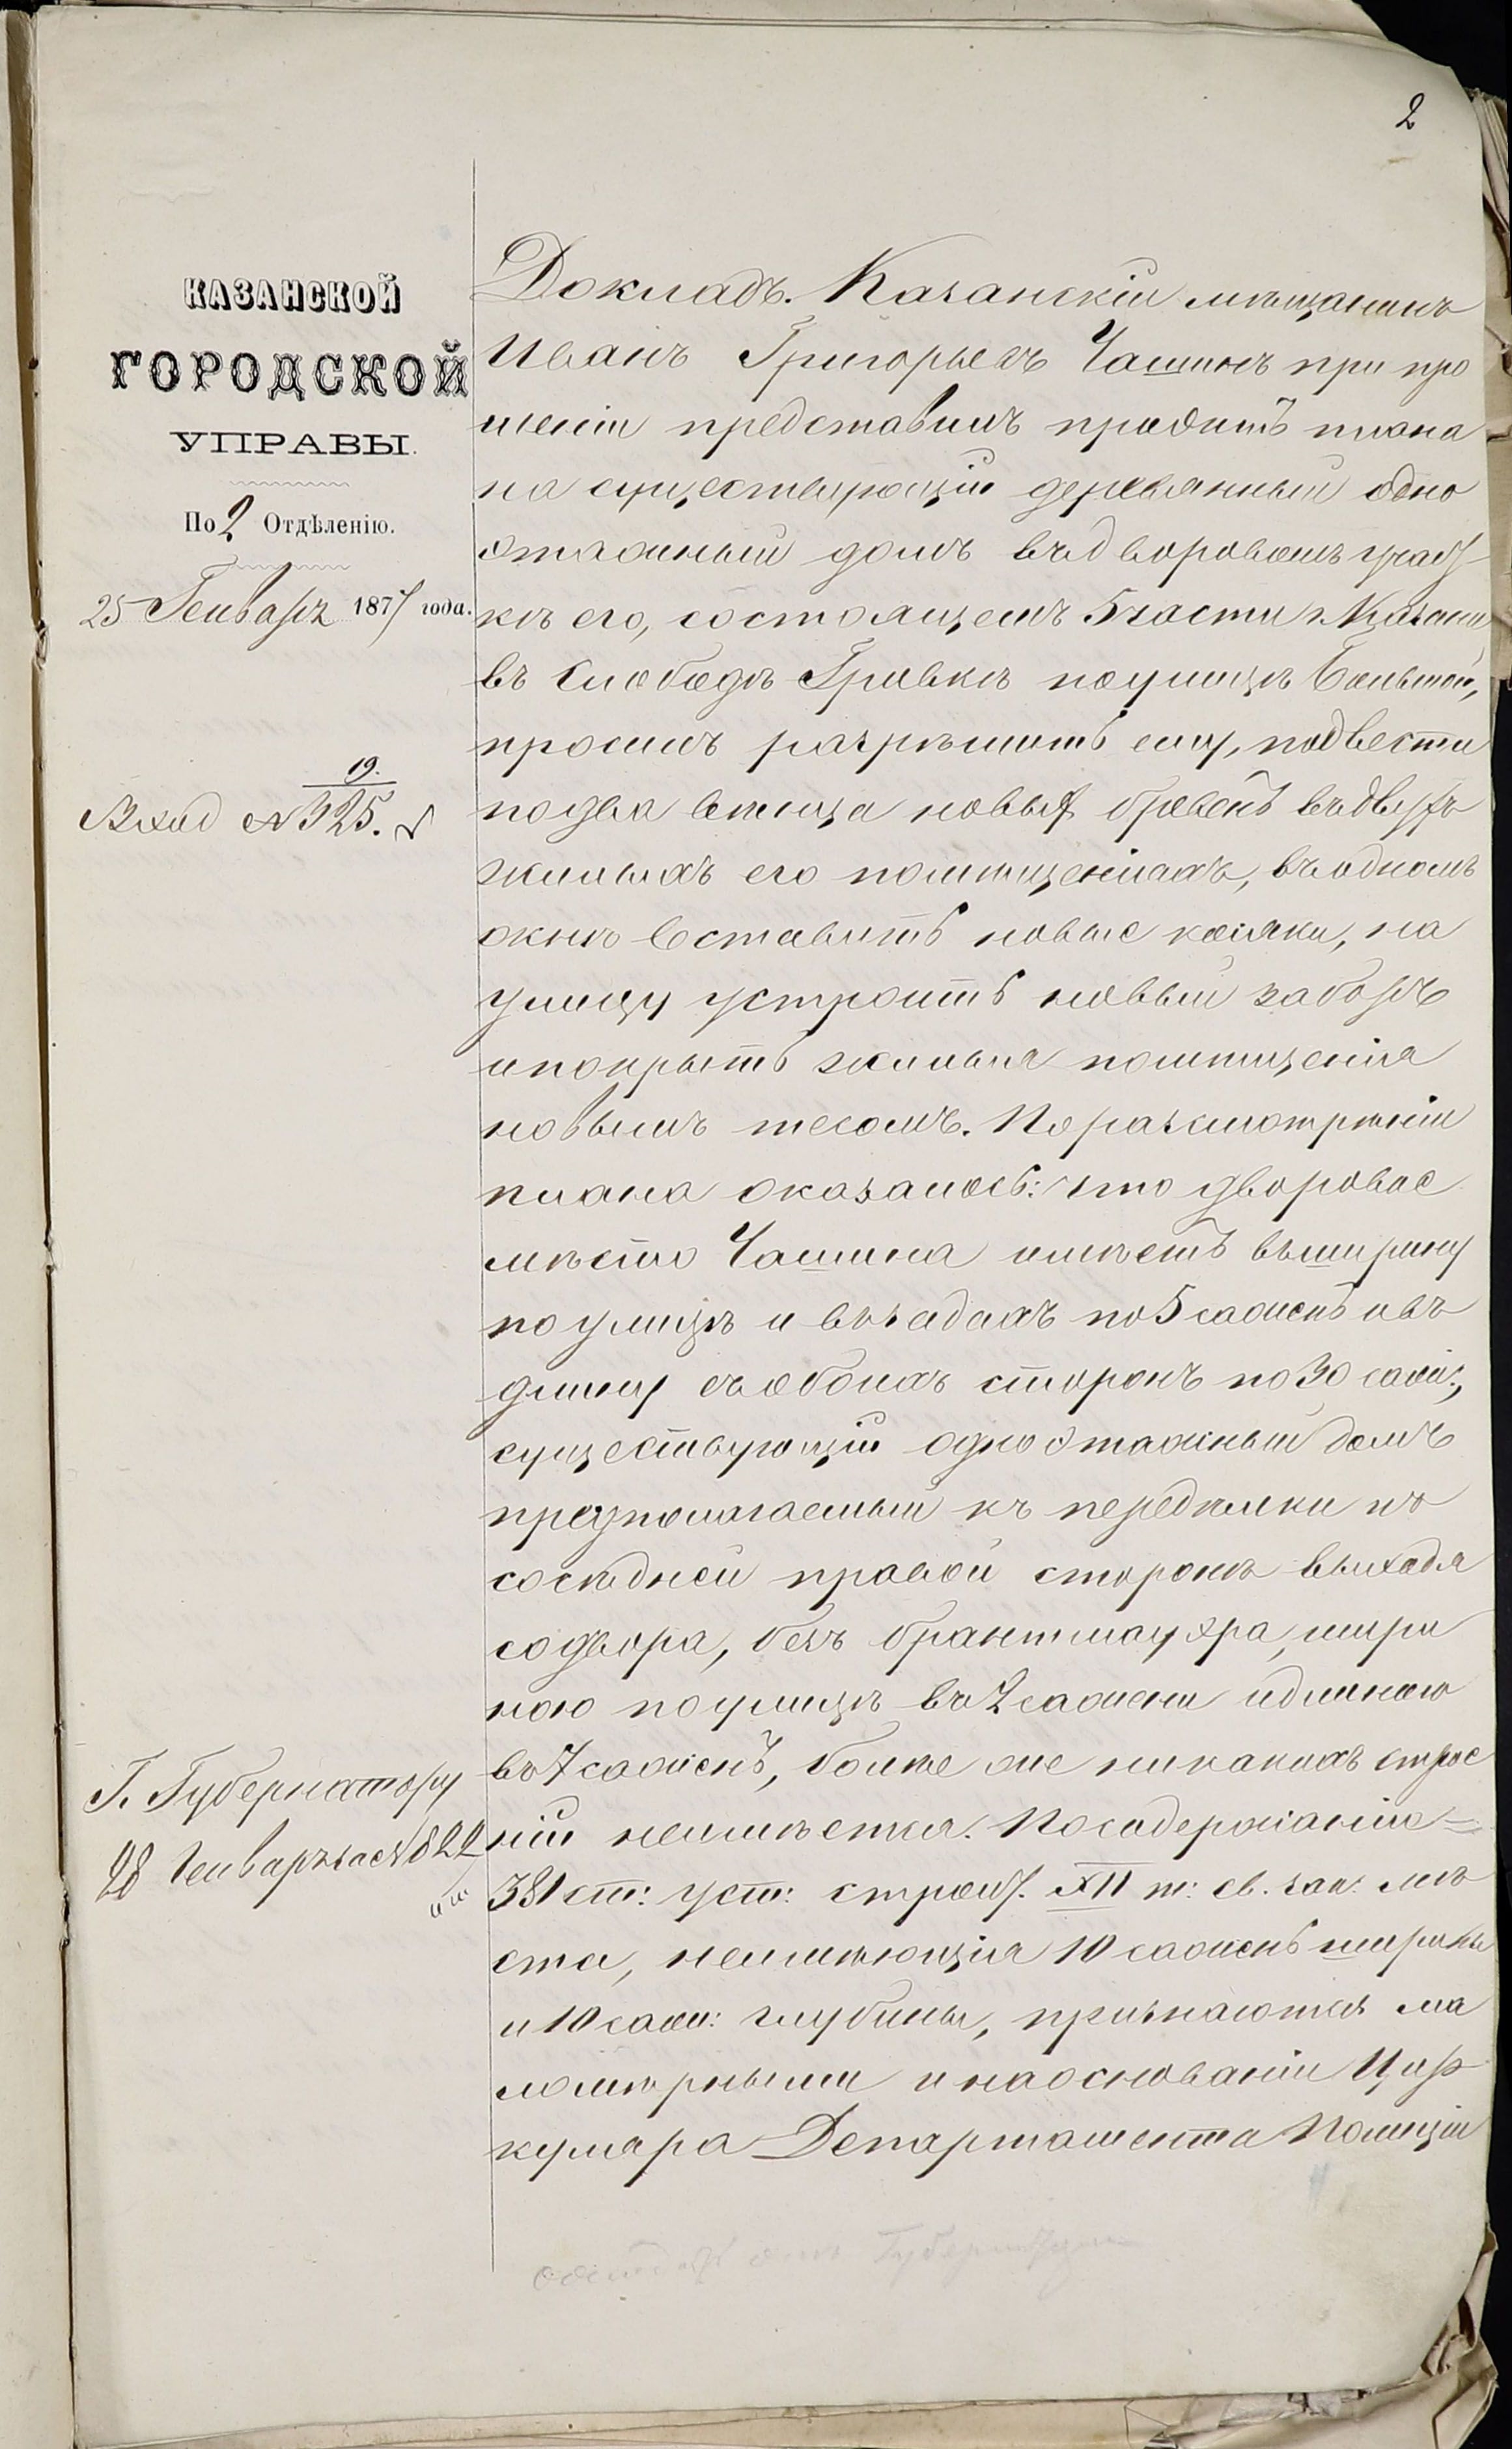 2
КАЗАНСКОЙ
ГОРОДСКОЙ
УПРАВЫ.
По 2 Отдѣленію.
25 Генваря 1877 года.
19.
Вход № 325.
Г. Губернатору
28 Генваря за № 822
Докладъ. Казанскій мѣщанинъ
Иванъ Григорьевъ Чашинъ при про
шеніи представилъ проэктъ плана
на существующій деревянный одно
этажный домъ въ дворовомъ участ
кѣ его, состоящемъ 5 части г. Казани
въ Слободѣ Гривкѣ по улицѣ Большой,
просилъ разрѣшить ему, подвести
по два венца новыхъ бревенъ въ двухъ
жилыхъ его помѣщеніяхъ, въ одномъ
окнѣ вставить новые косяки, на
улицу устроить новый заборъ
и покрыть жилыя помѣщенія
новымъ тесомъ. По разсмотрѣніи
плана оказалось: что дворовое
мѣсто Чашина имѣетъ въ ширину
по улицѣ и въ задахъ по 5 саженъ и въ
длину съ обоихъ сторонъ по 30 саж:,
существующій одноэтажный домъ
предполагаемый къ передѣлки къ
сосѣдней правой сторонѣ выходя
со двора, безъ брантмауэра, шири
ною по улицѣ въ 2 сажени и длиною
въ 7 саженъ, болѣе же ни какихъ строе
ній не имѣется. По содержанію
381 ст: уст: строит. XII т: св. зак: мѣ
ста, не имѣющія 10 саженъ ширины
и 10 саж: глубины, признаются ма
ломѣрными и на основаніи Цир
куляра Департамента Полиціи